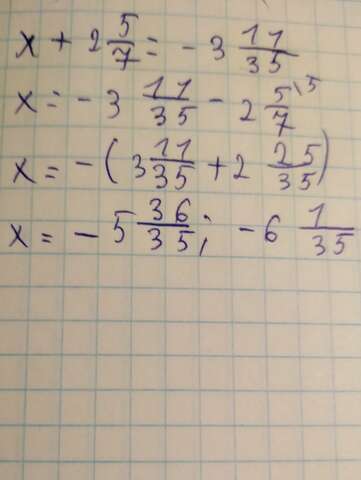 x + 2 5/7 = - 3 11/35
x = - 3 11/35 - 2 5/7 \5
x = - (3 11/35 + 2 25/35)
x = - 5 36/35; - 6 1/35